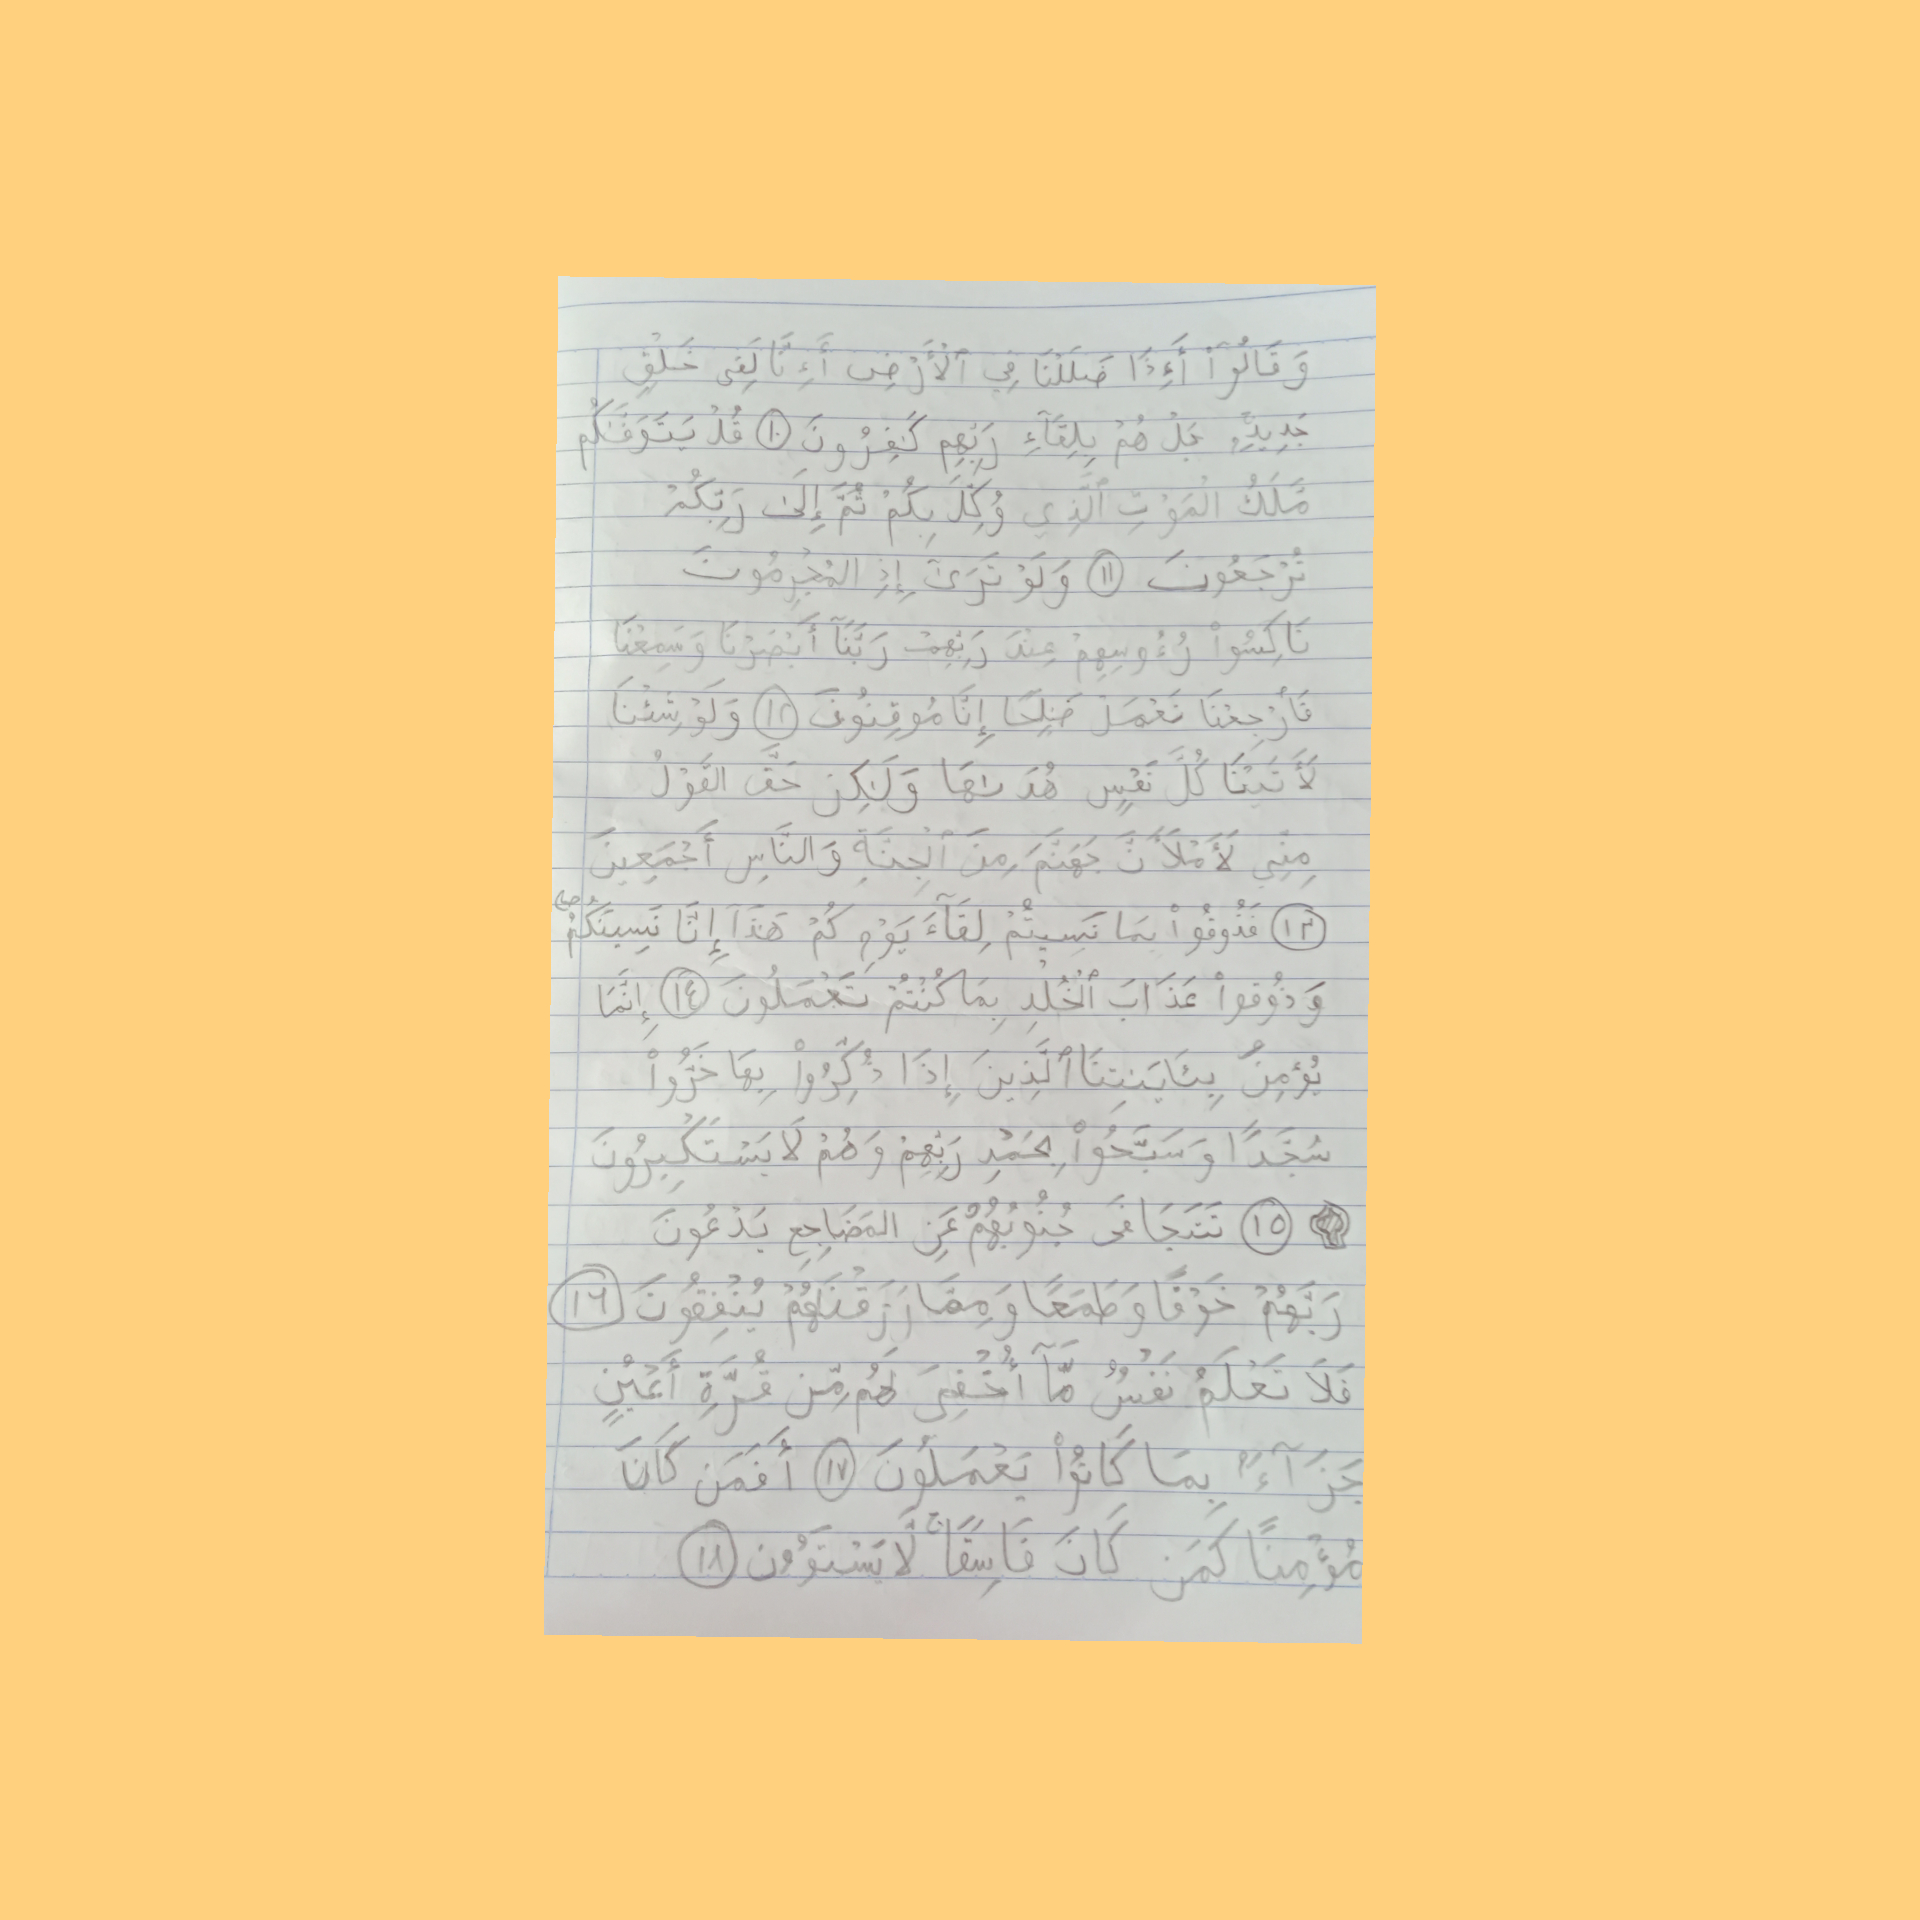 وَقَالُوٓا۟ أَءِذَا ضَلَلْنَا فِي ٱلْأَرْضِ أَءِنَّا لَفِى خَلْقٍ
جَدِيدٍۭ بَلْ هُمْ بِلِقَآءِ رَبِّهِم كَٰفِرُونَ ١٠ قُلْ يَتَوَفَّىٰكُم
مَّلَكُ الْمَوْتِ ٱلَّذِي وُكِّلَ بِكُمْ ثُمَّ إِلَىٰ رَبِّكُمْ
تُرْجَعُونَ ١١ وَلَوْ تَرَىٰٓ إِذِ المُجْرِمُونَ
نَاكِسُوا۟ رُءُوسِهِمْ عِنْدَ رَبِّهِمْ رَبَّنَآ أَبْصَرْنَا وَسَمِعْنَا
فَٱرْجِعْنَا نَعْمَلْ صَٰلِحًا إِنَّا مُوقِنُونَ ١٢ وَلَوْ شِئْنَا
لَأَتَيْنَا كُلَّ نَفْسٍ هُدَىٰهَا وَلَٰكِنْ حَقَّ القَوْلُ
مِنِّي لَأَمْلَأَنَّ جَهَنَّمَ مِنَ ٱلْجِنَّةِ وَالنَّاسِ أَجْمَعِينَ
١٣ فَذُوقُوا۟ بِمَا نَسِيتُمْ لِقَآءَ يَوْمِكُمْ هَٰذَآ إِنَّا نَسِينَٰكُمْ ۖ
وَذُوقُوا۟ عَذَابَ ٱلْخُلْدِ بِمَا كُنْتُمْ تَعْمَلُونَ ١٤ إِنَّمَا
يُؤْمِنُ بِـَٔايَٰتِنَا ٱلَّذِينَ إِذَا ذُكِّرُوا۟ بِهَا خَرُّوا۟
سُجَّدًا وَسَبَّحُوا۟ بِحَمْدِ رَبِّهِمْ وَهُمْ لَا يَسْتَكْبِرُونَ
١٥ تَتَجَافَىٰ جُنُوبُهُمْ عَنِ المَضَاجِعِ يَدْعُونَ
رَبَّهُمْ خَوْفًا وَطَمَعًا وَمِمَّا رَزَقْنَٰهُمْ يُنْفِقُونَ ١٦
فَلَا تَعْلَمُ نَفْسٌ مَّآ أُخْفِيَ لَهُم مِّن قُرَّةِ أَعْيُنٍ
جَزَآءًۢ بِمَا كَانُوا۟ يَعْمَلُونَ ١٧ أَفَمَن كَانَ
مُؤْمِنًا كَمَن كَانَ فَاسِقًا ۚ لَّا يَسْتَوُونَ ١٨